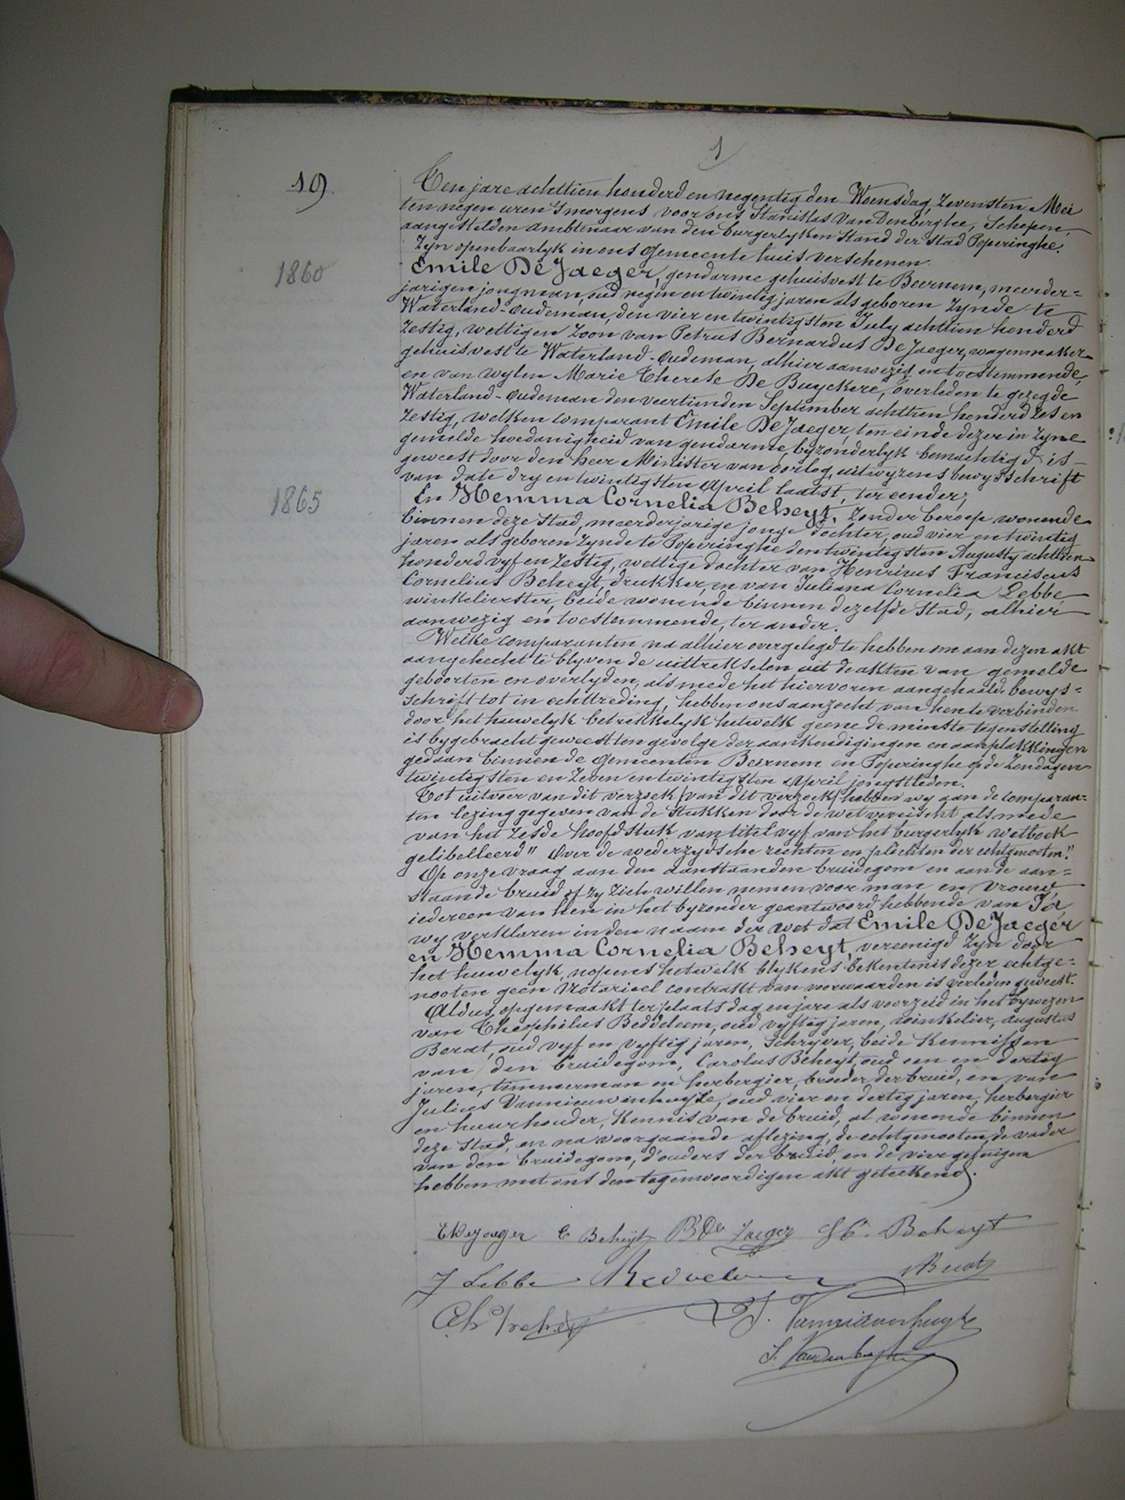 1
19.
Ten jare achttien honderd en negentig den Woensdag, Zevensten Mei
ten negen uren 's morgens voor ons Stanislas Van Denberghe, Schepen,
aangestelden ambtenaar van den burgerlyken stand der stad Poperinghe.
Zyn openbaarlyk in ons Gemeente huis verschenen
1860
Emile De Jaeger, gendarme gehuisvest te Beernem, meerder=
jarigen jongman, oud negen en twintig jaren als geboren zynde te
Waterland-oudeman, den vier en twintigsten July achttien honderd
zestig, wettigen zoon van Petrus Bernardus De Jaeger, wagenmaker
gehuisvest te Waterland-oudeman, alhier aanwezig en toestemmende,
en van wylen Marie Therese De Buyckere, overleden te gezegde
Waterland-oudeman den veertienden September achttien honderd zes en
zestig, welken comparant Emile De Jaeger, ten einde dezer in zyne
gemelde hoedanigheid van gendarme, byzonderlyk bemachtigd is
geweest door den heer Minister van oorlog, uitwyzens bewysschrift
van date dry en twintigsten April laatst, ter eender;
1865
En Hemma Cornelia Beheyt, zonder beroep wonende
binnen deze stad, meerderjarige jonge dochter, oud vier en twintig
jaren als geboren zynde te Poperinghe den twintigsten Augusty achttien
honderd vyf en zestig, wettige dochter van Henricus Franciscus
Cornelius Beheyt, drukker, en van Juliana Cornelia Lebbe
winkelierster, beide wonende binnen dezelfde stad, alhier
aanwezig en toestemmende, ter ander.
Welke comparanten na alhier overgelegd te hebben om aan dezen akt
aangehecht te blyven de uittrekselen uit de akten van gemelde
geboorten en overlyden, als mede het hiervoren aangehaald bewys=
schrift tot in echttreding, hebben ons aanzocht van hen te verbinden
door het huwelyk betrekkelyk hetwelk geene de minste tegenstelling
is bygebracht geweest ten gevolge der aankondigingen en aanplakkingen
gedaan binnen de Gemeenten Beernem en Poperinghe op de zondagen
twintigsten en zeven en twintigsten April jongstleden.
Tot uitvoer van dit verzoek (van dit verzoek) hebben wy aan de comparan=
ten lezing gegeven van de stukken door de wet vereischt als mede
van het zesde hoofdstuk van titel vyf van het burgerlyk wetboek
gelibelleerd "Over de wederzydsche rechten en plichten der echtgenooten."
Op onze vraag aan den aanstaanden bruidegom en aan de aan=
staande bruid of zy zich willen nemen voor man en vrouw
iedereen van hen in het byzonder geantwoord hebbende van Ja
wy verklaren in den naam der wet dat Emile De Jaeger
en Hemma Cornelia Beheyt, vereenigd zyn door
het huwelyk, nopens hetwelk blykens bekentenis dezer echtge=
nooten geen Notarieel contrakt van voorwaarden is verleden geweest.
Aldus opgemaakt ter plaats dag en jare als voorzeid in het bywezen
van Theophilus Beddeleem, oud vyftig jaren, winkelier, augustus
Berat, oud vyf en vyftig jaren, schryver, beide kennissen
van den bruidegom, Carolus Beheyt, oud een en dertig
jaren, timmerman en herbergier, broeder der bruid, en van
Julius Vannieuwenhuyse, oud vier en dertig jaren, herbergier
en huurhouder, kennis van de bruid, al wonende binnen
deze stad, en na voorgaande aflezing, de echtgenooten, de vader
van den bruidegom, d'ouders der bruid, en de vier getuigen
hebben met ons den tegenwoordigen akt geteekend.
E Dejaeger E Beheyt B De Jaeger H Beheyt
J Lebbe